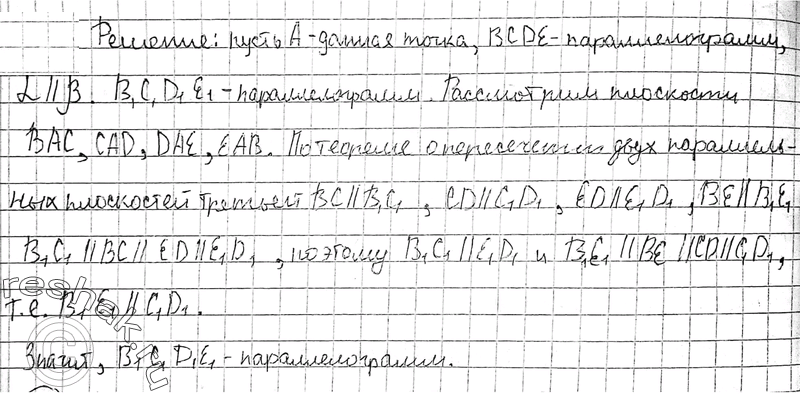 Решение: пусть A-данная точка, BCDE-параллелограмм,
α∥β. B₁C₁D₁E₁-параллелограмм. Рассмотрим плоскости
BAC, CAD, DAE, EAB. По теореме о пересечении двух параллель-
ных плоскостей третьей BC∥B₁C₁, CD∥C₁D₁, ED∥E₁D₁, BE∥B₁E₁
B₁C₁∥BC∥ED∥E₁D₁, поэтому B₁C₁∥E₁D₁ и B₁E₁∥BE∥CD∥C₁D₁,
т.е. B₁E₁∥C₁D₁.
Значит, B₁C₁D₁E₁-параллелограмм.
reshak.ru
©